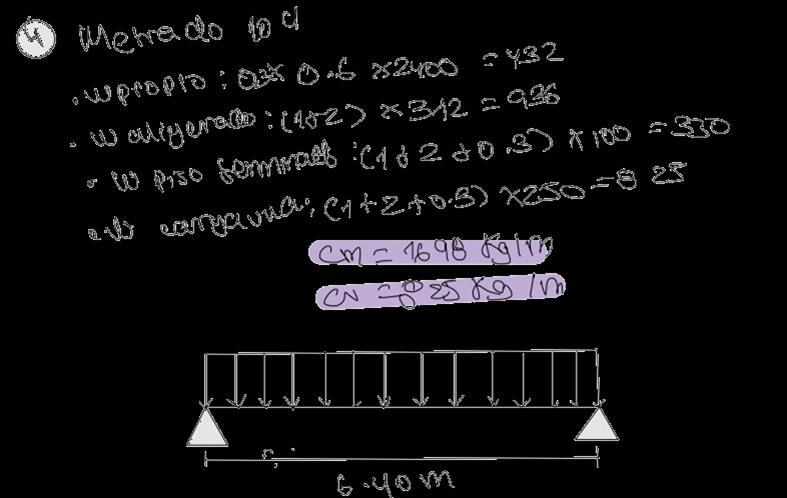 4 Metrado
. w propio : 0.3x 0.6 x2400 = 432
. w aligerado : (1+2) x 312 = 936
. w piso terminado : (1+2+0.3) x 100 = 330
. w carga viva : (1+2+0.3) x250 = 825
Cm = 1698 Kg/m
CV = 825 Kg/m
6.40 m